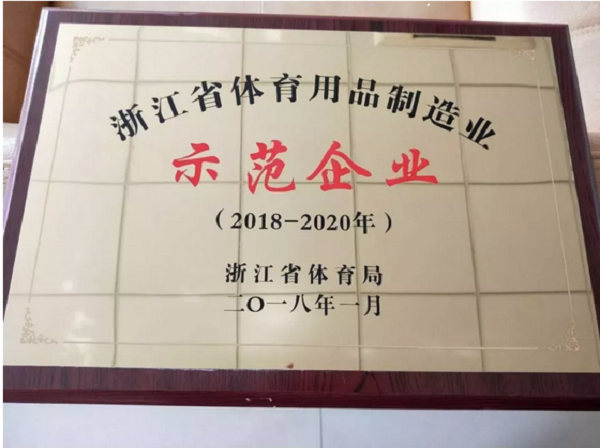 浙江省体育用品制造业
示范企业
(2018-2020年)
浙江省体育局
二〇一八年一月